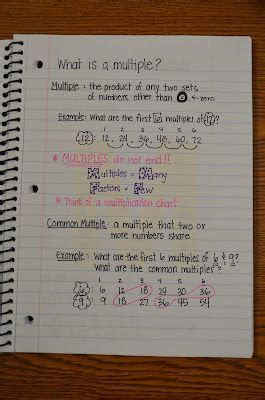 What is a multiple?
Multiple: the product of any two sets
of numbers other than 0 ← zero
Example: What are the first 6 multiples of 12?
1 2 3 4 5 6
12: 12, 24, 36, 48, 60, 72
* MULTIPLES do not end!!
Multiples = Many
Factors = Few
* Think of a multiplication chart
Common Multiple: a multiple that two or
more numbers share
Example: What are the first 6 multiples of 6 & 9?
What are the common multiples?
1 2 3 4 5 6
6: 6 12 18 24 30 36
9: 9 18 27 36 45 54